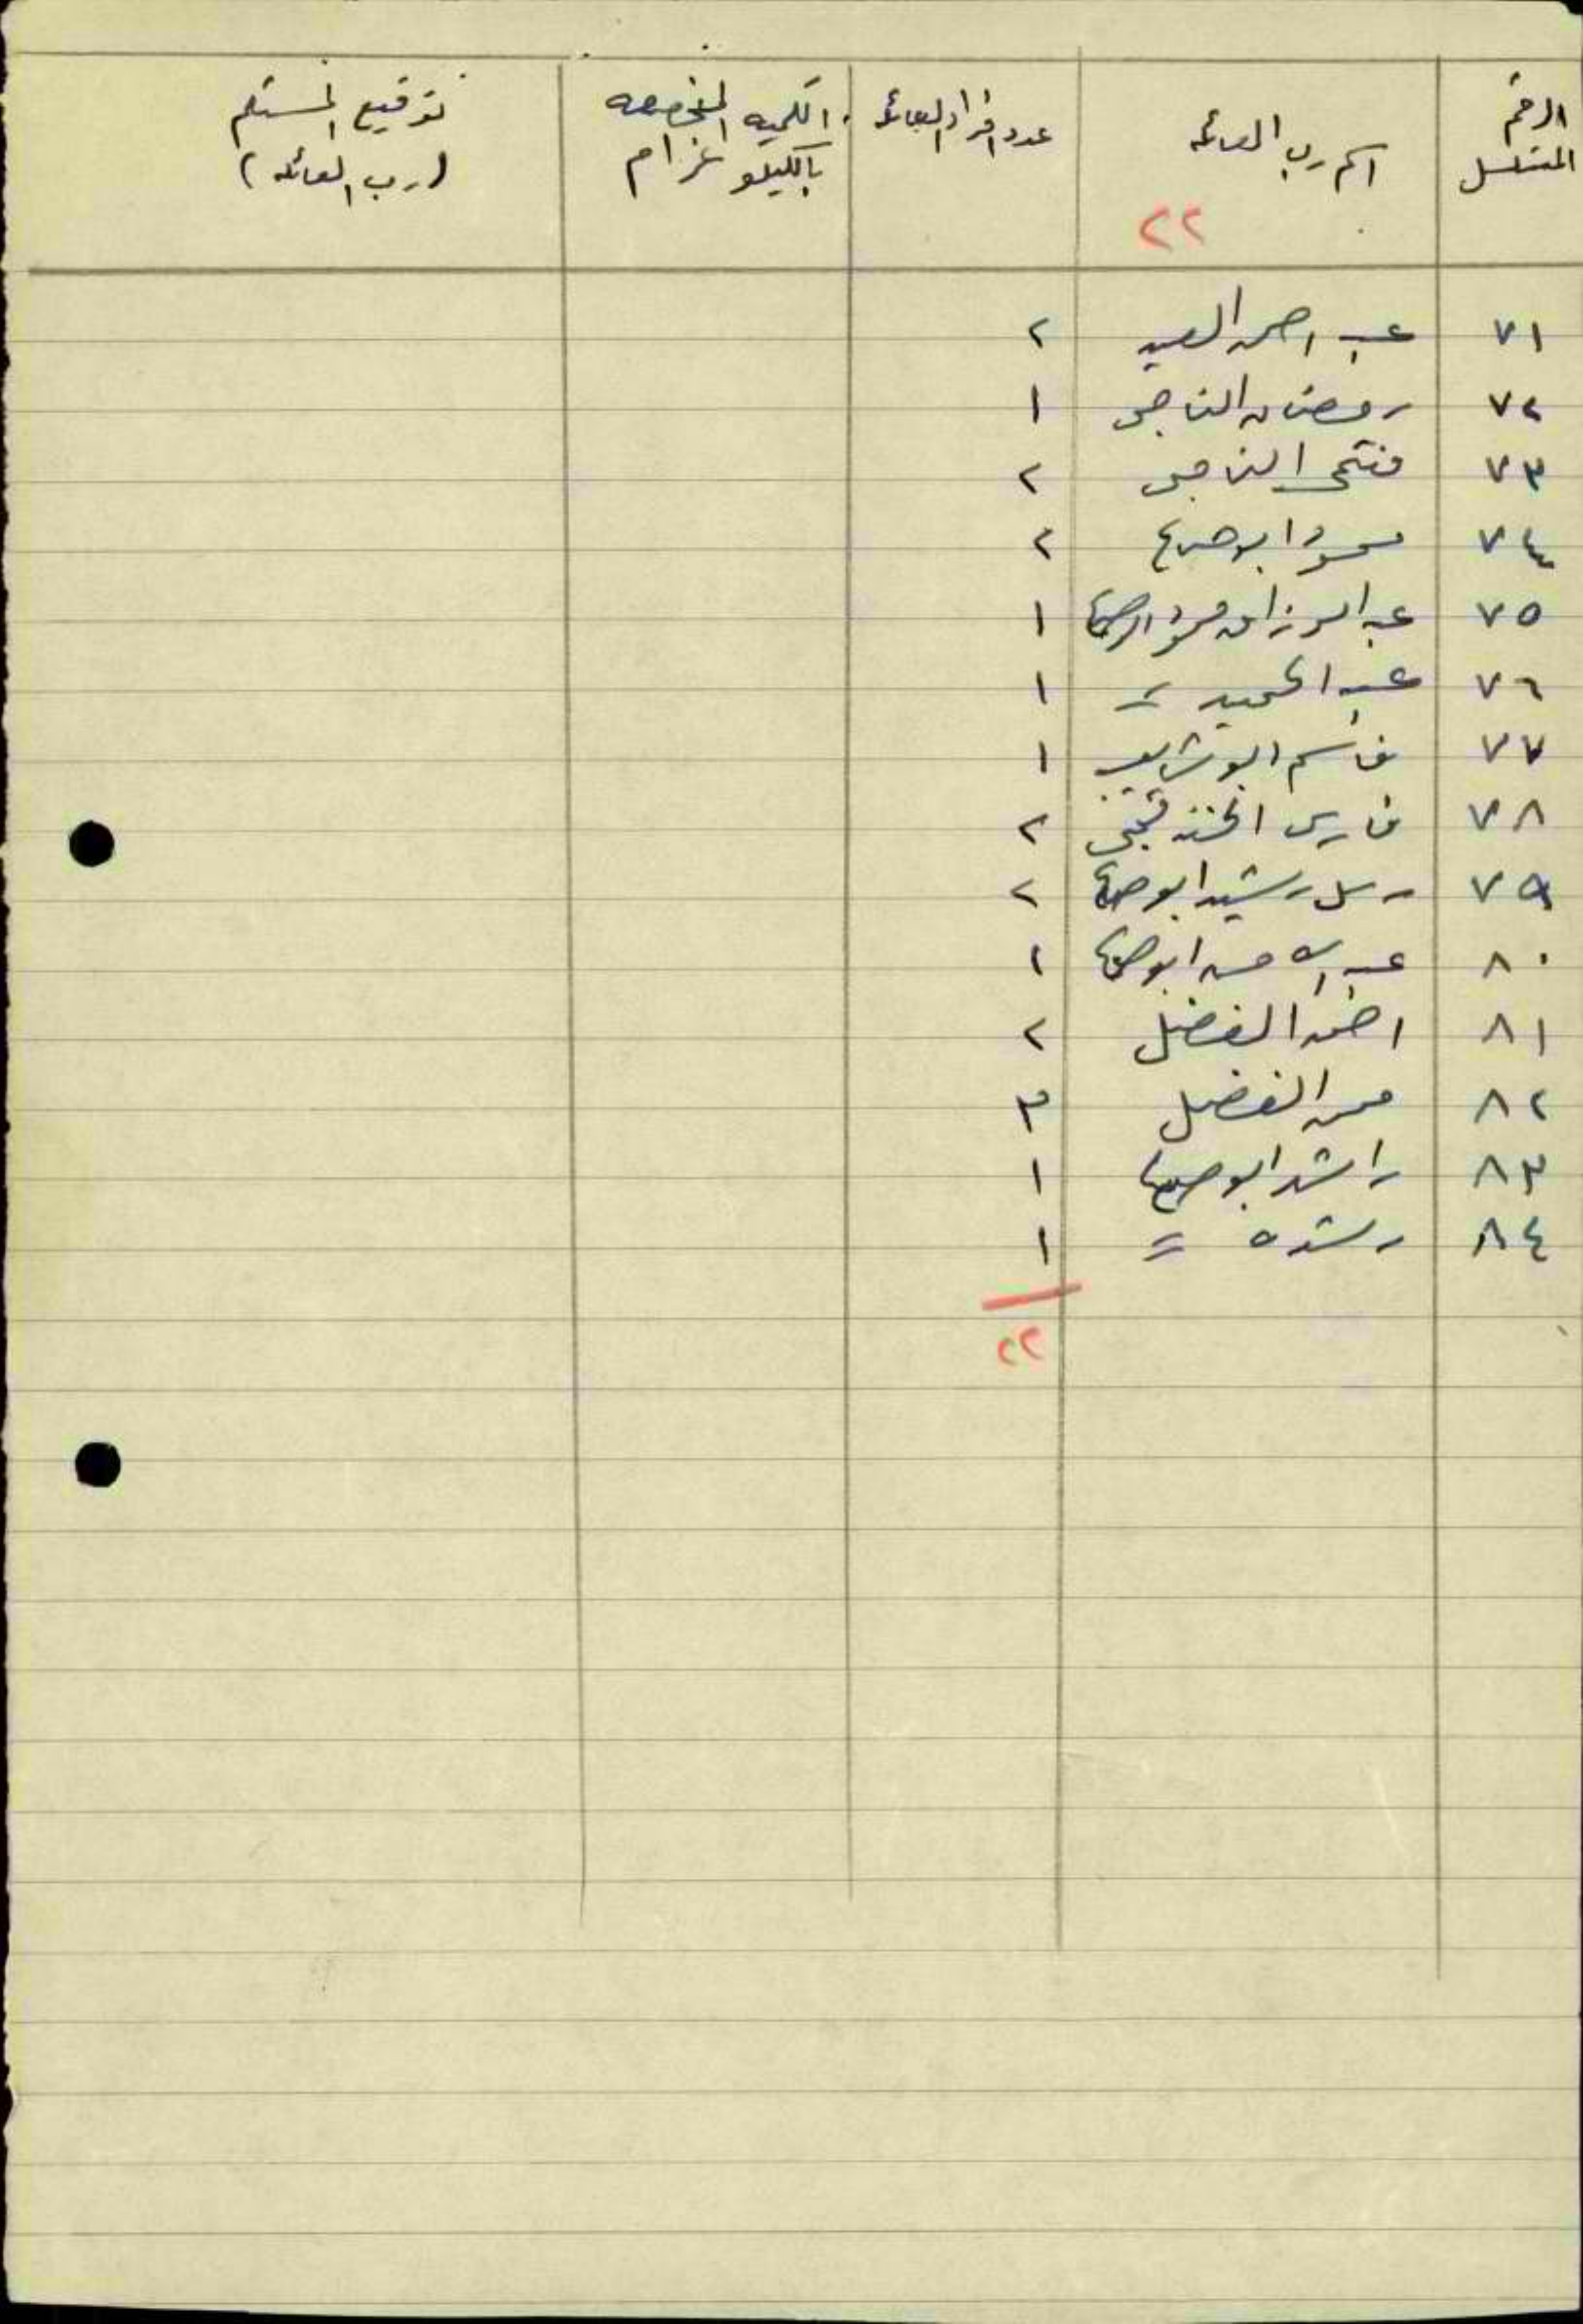 الرقم المتسلسل | اسم رب العائله | عدد افراد العائله | الكميه المخصصه بالكيلو غرام | توقيع المستلم (رب العائله)
٢٢
٧١ عبد احمد السعيد ٢
٧٢ رمضان الناجي ١
٧٣ فتحي الناجي ٢
٧٤ محمود ابو ٢
٧٥ عبد الرزاق محمود ١
٧٦ عبد الحميد = ١
٧٧ قاسم ابو ١
٧٨ فارس ٢
٧٩ رشيد ابو ٢
٨٠ عبد ابو ١
٨١ احمد الفضل ٢
٨٢ الفضل ٣
٨٣ راشد ابو ١
٨٤ رشده = ١
٢٢